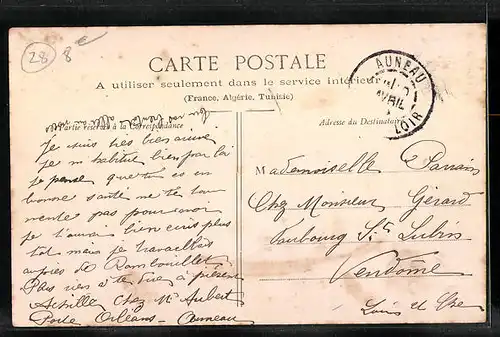 28
8 e
CARTE POSTALE
A utiliser seulement dans le service intérieur
(France, Algérie, Tunisie)
Partie réservée à la Correspondance
Adresse du Destinataire
AUNEAU
AVRIL
LOIR
Je suis très bien arrivé
je m habitue bien par la
Je pense que tu es en
bonne santé ne te tour
mente pas
je t'aurai bien écris plus
tot mais je travaillais
auprès de Rambouillet
Pas rien a te dire à présent
Achille Chez Mr Aubert
Porte Orléans - Auneau
Mademoiselle Parrain
Chez Monsieur Gérard
Faubourg St Lubin
Vendôme
Loir et Cher